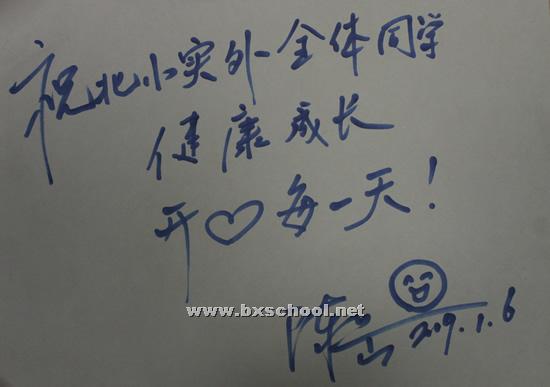 祝北小实外全体同学
健康成长
开♡每一天！
www.bxschool.net
2009.1.6